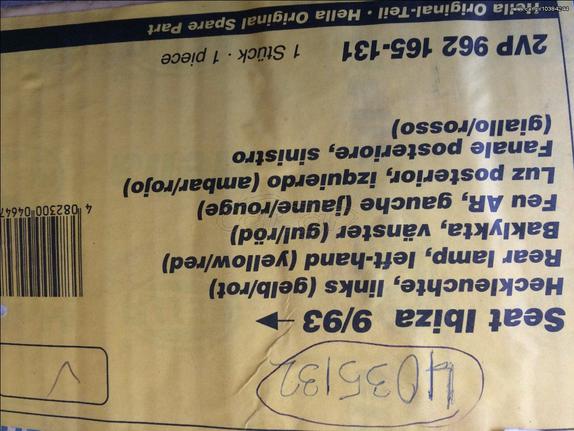 4035132
Seat Ibiza 9/93 →
Heckleuchte, links (gelb/rot)
Rear lamp, left-hand (yellow/red)
Baklykta, vänster (gul/röd)
Feu AR, gauche (jaune/rouge)
Luz posterior, izquierdo (ambar/rojo)
Fanale posteriore, sinistro
(giallo/rosso)
4 082300 04647
2VP 962 165-131 1 Stück · 1 piece
Hella Original-Teil · Hella Original Spare Part